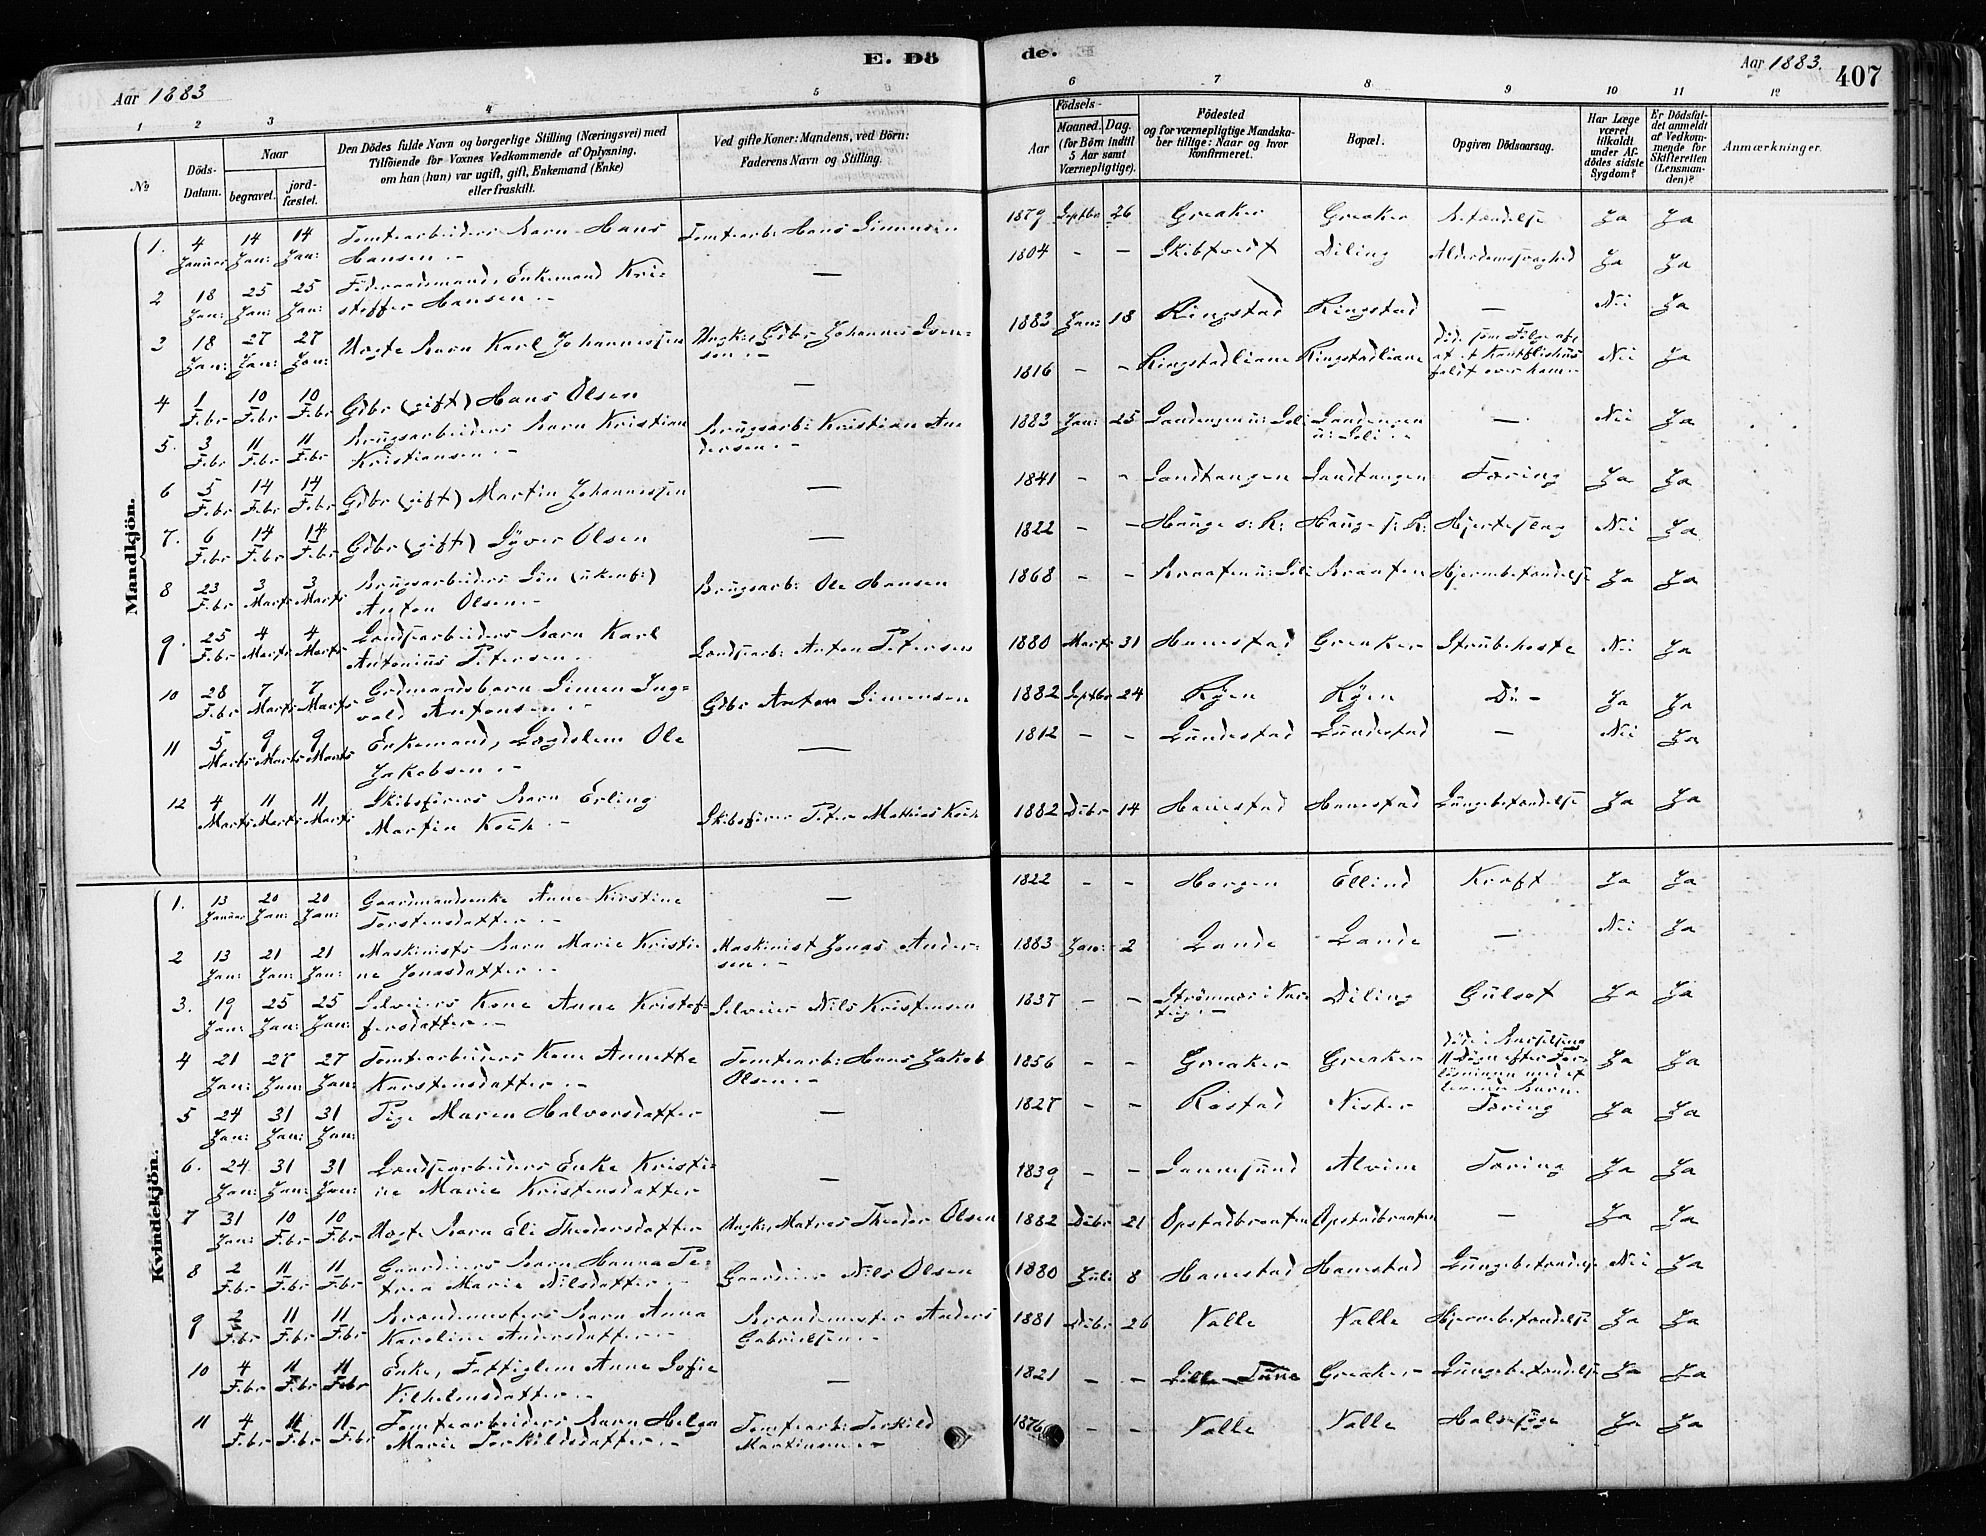 E. Dö
de.
Aar 1883
Aar 1883.
407
1
2
3
4
5
6
7
8
9
10
11
12
№
Döds-Datum.
Naar
begravet.
jord-fæstet.
Den Dödes fulde Navn og borgerlige Stilling (Næringsvei) med
Tilföiende for Voxnes Vedkommende af Oplysning,
om han (hun) var ugift, gift, Enkemand (Enke)
eller fraskilt.
Ved gifte Koner: Mandens, ved Börn:
Faderens Navn og Stilling.
Födsels-
Aar
Maaned. Dag.
(for Börn indtil
5 Aar samt
Værnepligtige).
Födested
og for værnepligtige Mandska-
ber tillige: Naar og hvor
konfirmeret.
Bopæl.
Opgiven Dödsaarsag.
Har Læge
været
tilkaldt
under Af-
dödes sidste
Sygdom?
Er Dödsfal-
det anmeldt
af Vedkom-
mende for
Skifteretten
(Lensman-
den)?
Anmærkninger.
Mandkjön.
1. 4 Januar 14 Jan: 14 Jan: Tomtearbeiders Barn Hans Hansen.- Tomtearb: Hans Simensen 1879 Septbr 26 Greaker Greaker Betændelse Ja Ja
2 18 Jan: 25 Jan: 25 Jan: Föderaadsmand, Enkemand Kri-
stoffer Hansen.- — 1804 - - Skibtvedt Diling Alderdomssvaghed Ja Ja
3 18 Jan: 27 Jan: 27 Jan: Uægte Barn Karl Johannessen Ungk., Gdbr. Johannes Sven-
sen.- 1883 Jan: 18 Ringstad Ringstad — Nei Ja
4 1 Febr 10 Febr 10 Febr Gdbr (gift) Hans Olsen — 1816 - - Ringstadliane Ringstadliane döde som Fölge af,
at et faldt over ham.- Nei Ja
5. 3 Febr 11 Febr 11 Febr Brugsarbeiders Barn Kristian
Kristiansen.- Brugsarb: Kristian An-
dersen.- 1883 Jan: 25 Sandengen u: Soli Sandengen
u: Soli.- — Nei Ja
6 5 Febr 14 Febr 14 Febr Gdbr (gift) Martin Johannessen — 1841 - - Sandtangen Sandtangen Tæring Ja Ja
7. 6 Febr 14 Febr 14 Febr Gdbr (gift) Syver Olsen — 1822 - - Hauge s: R: Hauge s: R: Hjerteslag Nei Ja
8 23 Febr 3 Marts 3 Marts Brugsarbeiders Sön (ukonf:)
Anton Olsen.- Brugsarb: Ole Hansen 1868 - - Braaten u: Soli Braaten Hjernebetændelse Ja Ja
9. 25 Febr 4 Marts 4 Marts Landsarbeiders Barn Karl
Antonius Petersen.- Landsarb: Anton Petersen 1880 Marts 31 Hannestad Greaker Strubehoste Nei Ja
10 28 Febr 7 Marts 7 Marts Grdmandsbarn Simen Ing-
vald Antonsen.- Gdbr Anton Simensen 1882 Septbr 24 Ryen Ryen Do - Ja Ja
11 5 Marts 9 Marts 9 Marts Enkemand, Lægdslem Ole
Jakobsen.- — 1812 - - Lundestad Lundestad — Nei Ja
12 4 Marts 11 Marts 11 Marts Skibsförers Barn Erling
Martin Koch.- Skibsförer Peter Mathias Koch 1882 Debr 14 Hannestad Hannestad Lungebetændelse Ja Ja
Kvindekjön.
1. 13 Januar 20 Jan: 20 Jan: Gaardmandsenke Anne Kirstine
Torstensdatter.- — 1822 - - Horgen Ellind Kræft Ja Ja
2 13 Jan: 21 Jan: 21 Jan: Maskinists Barn Marie Kristi-
ne Jonasdatter.- Maskinist Jonas Ander-
sen.- 1883 Jan: 2 Lande Lande — Nei Ja
3. 19 Jan: 25 Jan: 25 Jan: Selveiers Kone Anne Kristof-
fersdatter.- Selveier Nils Kristensen 1837 - - Diling Gulsot Ja Ja
4 21 Jan: 27 Jan: 27 Jan: Tomtearbeiders Kone Annette
Karstensdatter.- Tomtearb: Hans Jakob
Olsen.- 1856 - - Greaker Greaker döde i Barselseng
efter For-
lösningen med et
levende Barn. Ja Ja
5 24 Jan: 31 Jan: 31 Jan: Pige Maren Halvorsdatter — 1827 - - Röstad Nister Tæring Ja Ja
6. 24 Jan: 31 Jan: 31 Jan: Landsarbeiders Enke Kristi-
ne Marie Kristensdatter — 1839 - - Sannesund Alvim Tæring Ja Ja
7 31 Jan: 10 Febr 10 Febr Uægte Barn Eli Theodorsdatter Ungk., Matros Theodor Olsen 1882 Debr 21 Opstadbraaten Opstadbraaten — Ja Ja
8 2 Febr 11 Febr 11 Febr Gaardeiers Barn Hanna Pe-
trea Marie Nilsdatter.- Gaardeier Nils Olsen 1880 Juli 8 Hannestad Hannestad Lungebetændelse Nei Ja
9 2 Febr 11 Febr 11 Febr Brændemesters Barn Anna
Karoline Andersdatter.- Brændemester Anders
Gabrielsen.- 1881 Debr 26 Valle Valle Hjernebetændelse Ja Ja
10 4 Febr 11 Febr 11 Febr Enke, Fattiglem Anne Sofie
Vilhelmsdatter.- — 1821 - - Lille-Tune Greaker Lungebetændelse Ja Ja
11 4 Febr 11 Febr 11 Febr Tomtearbeiders Barn Helga
Marie Torkildsdatter.- Tomtearb: Torkild
Martinsen.- 1876 - - Valle Valle Halssyge Ja Ja